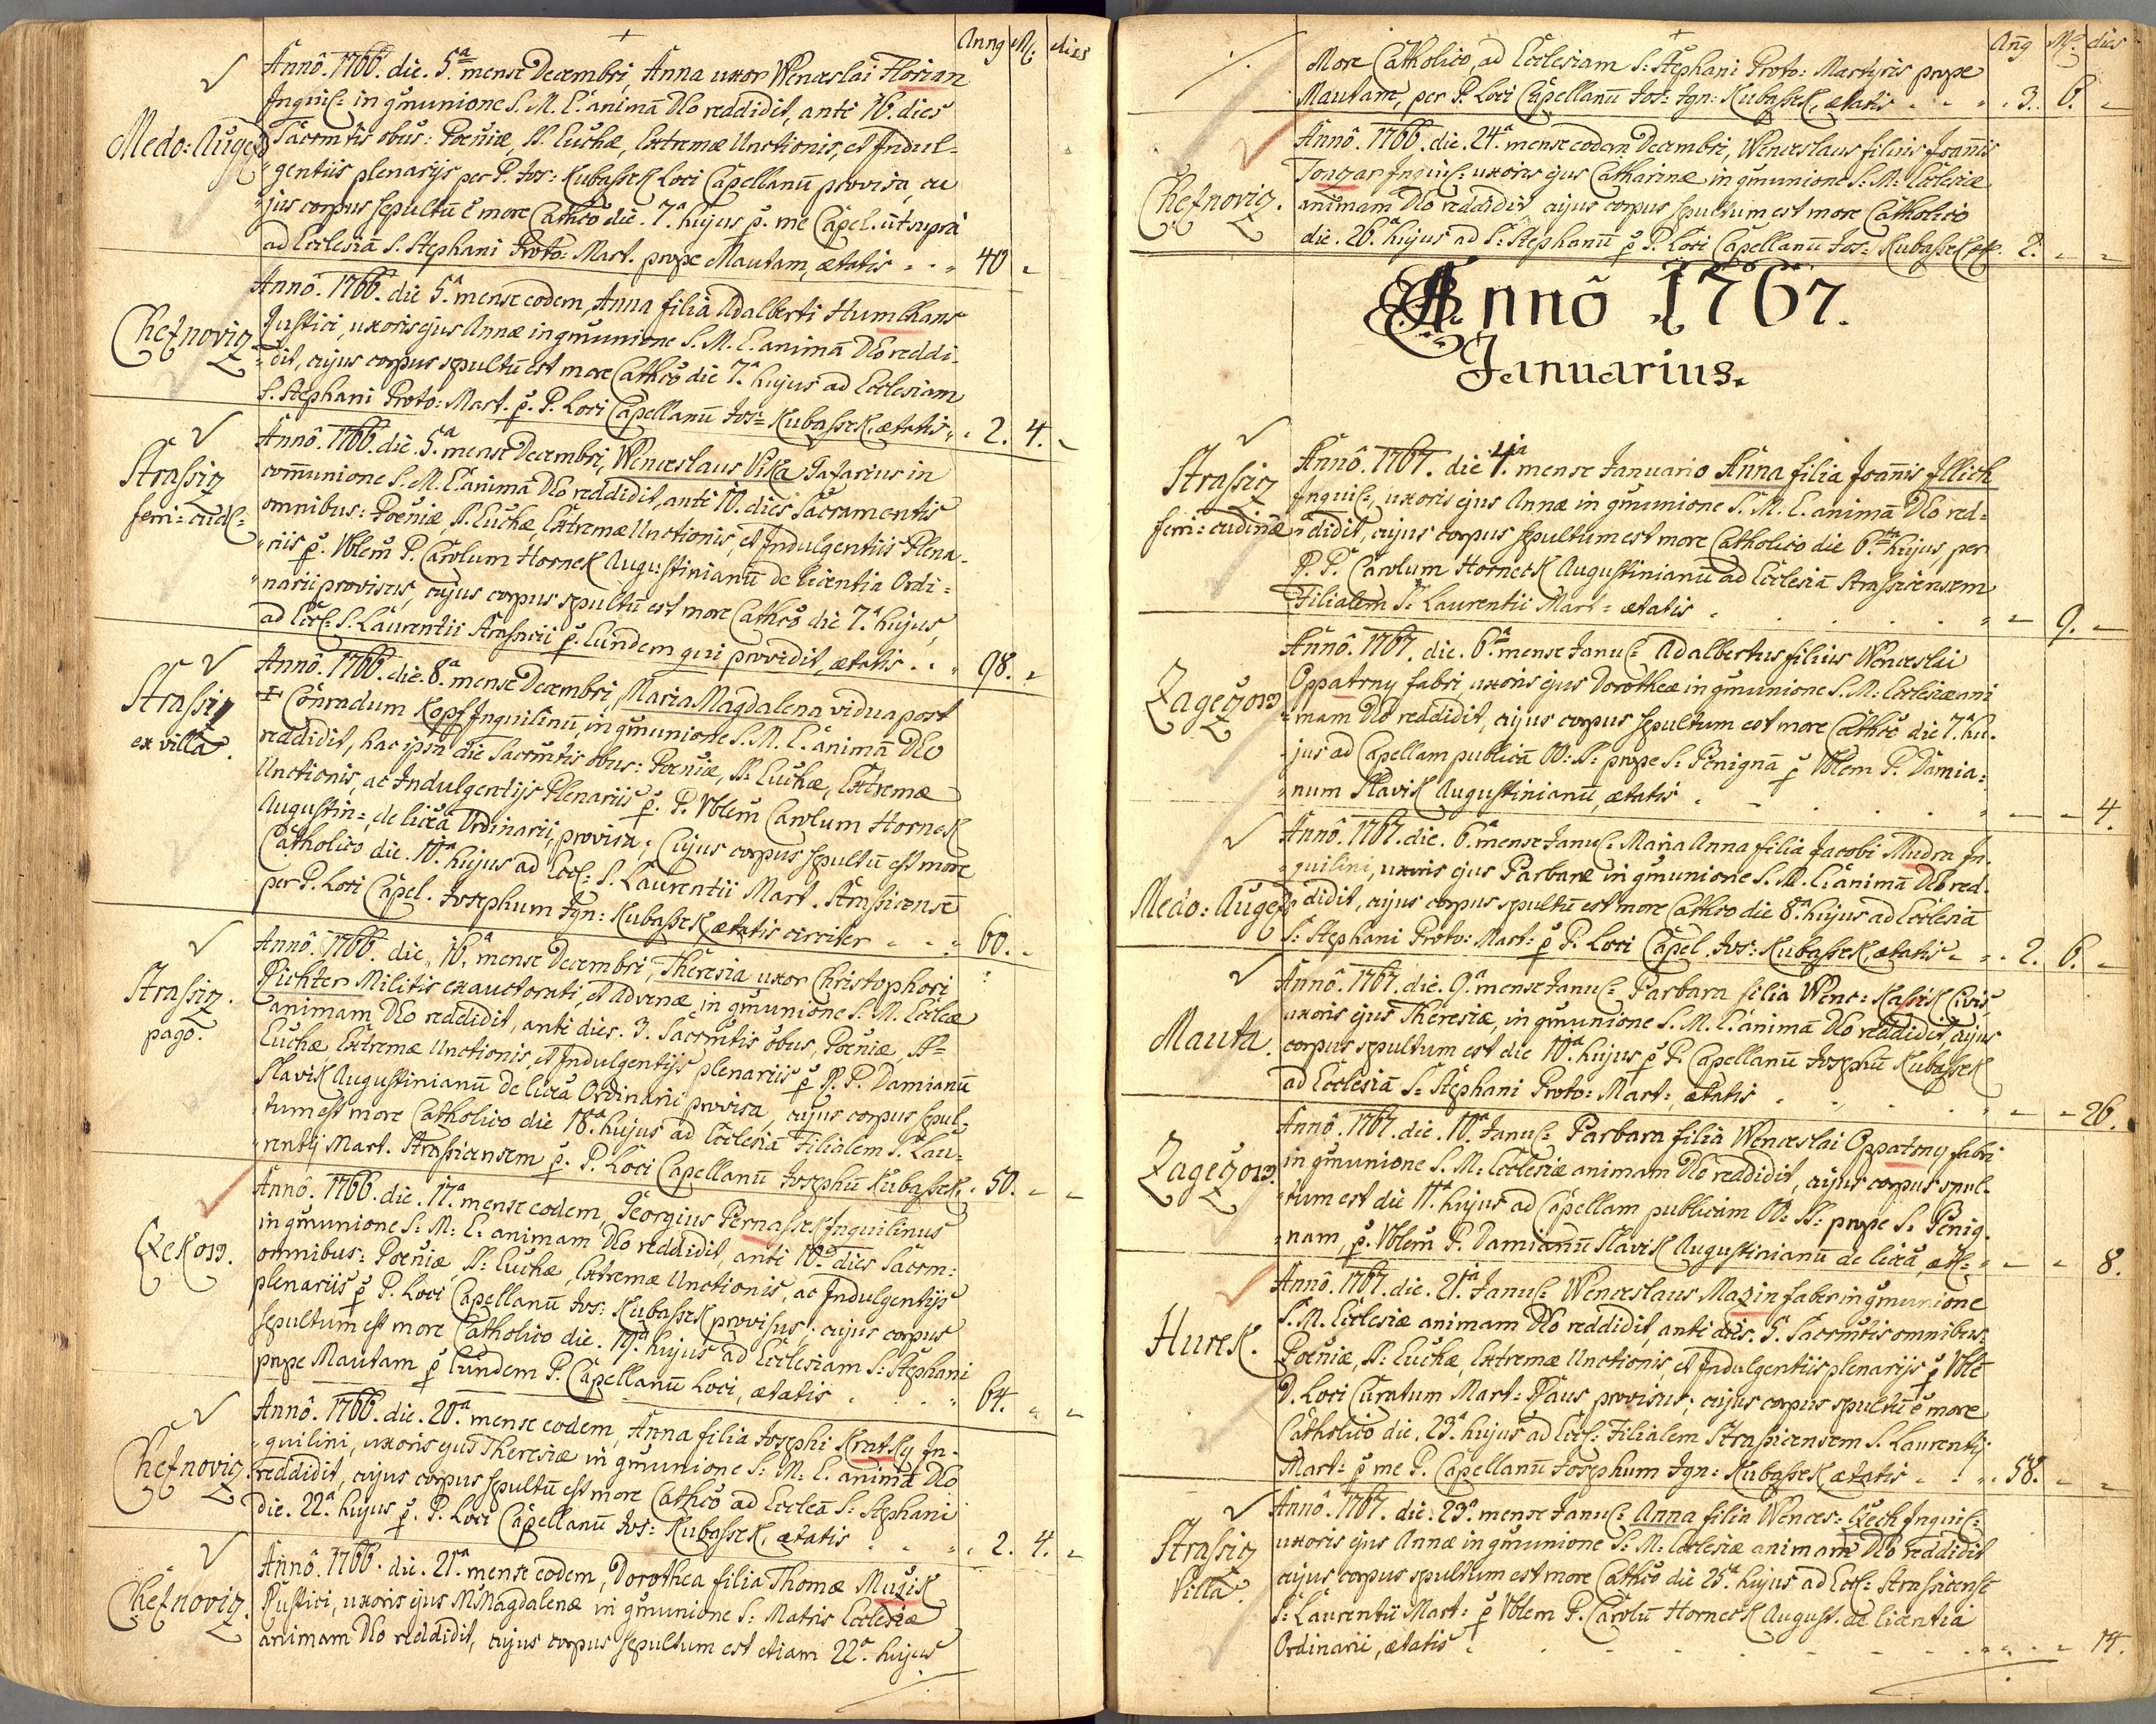 Anng M. dies
Medo: Augezd
Annô. 1766. die. 5.ª mense Decembri, Anna uxor Wenceslai Florian
Inquil: in gmunione S. M. E. animã Deo reddidit, anté 16. dies
Sacrmtis obus: Poeniæ, SS. Euchæ, Extremæ Unctionis, et Indul=
gentiis plenarijs per P. Jos: Kubassek Loci Capellanũ provisa, cu
jus corpus sepultũ ẽ more Cathcô die. 7.ª hujus p. me Capel. ut suprà
ad Ecclesiã S. Stephani Proto: Mart. prope Mautam, ætatis 40
Cheznoviz
Annô. 1766. die 5.ª mense eodem, Anna filia Adalberti Humlhans
Rustici, uxoris ejus Annæ in gmunione S. M. E. animã Deo reddi-
dit, cujus corpus sepultũ est more Cathcô die 7.ª hujus ad Ecclesiam
S. Stephani Proto: Mart. p. P. Loci Capellanũ Jos: Kubassek, ætatis 2. 4.
Strassiz
ferri: cudi:
Annô. 1766. die. 5.ª mense Decembri, Wenceslaus Vika Gafarius in
com̃unione S. M. E. animã Deo reddidit, anté 10. dies Sacramentis
omnibus: Poeniæ, SS. Euchæ, Extremæ Unctionis, et Indulgentiis Plena-
riis p. Vblem P. Carolum Hornek Augustinianũ de licentia Ordi=
narii provisus, cujus corpus sepultũ est more Cathcô die 7.ª hujus,
ad Eccl: S. Laurentii Strassicii p. Eundem qui providit, ætatis 98.
Strassiz
ex villa.
Annô. 1766. die. 8.ª mense Decembri, Maria Magdalena vidua post
✝ Conradum Kopf Inquilinũ, in gmunione S. M. E. animã Deo
reddidit, hac ipsa die Sacrmtis obus: Poeniæ, SS. Euchæ, Extremæ
Unctionis, ac Indulgentijs Plenariis p. P. Vblem Carolum Hornek
Augustin:, de licéa Ordinarii, provisa; Cujus corpus sepultũ est more
Catholico die. 10.ª hujus ad Eccl: S. Laurentii Mart. Strassicensẽ
per P. Loci Capel. Josephum Ign: Kubassek, ætatis circiter 60.
Strassiz.
pago.
Annô. 1766. die, 16.ª mense Decembri, Theresia uxor Christophori
Richter Militis exauctorati, et Advenæ in gmunione S. M. Ecclæ
animam Deo reddidit, anté dies. 3. Sacrmtis obus, Poeniæ, SS=
Euchæ Extremæ Unctionis, et Indulgentijs plenariis p P. P. Damianũ
Slavik Augustinianũ de licéa Ordinarii provisa, cujus corpus sepul-
tum est more Catholico die 18.ª hujus ad Ecclesiã Filialem S. Lau=
rentij Mart. Strassicensem p. P. Loci Capellanũ Josephũ Kubassek, 50.
Czekow.
Annô. 1766. die. 17.ª mense eodem, Georgius Pernassek Inquilinus
in gmunione S: M: E. animam Deo reddidit, anté 10. dies Sacrm:
omnibus: Poeniæ, SS: Euchæ, Extremæ Unctionis, ac Indulgentijs
plenariis p P. Loci Capellanũ Jos: Kubassek provisus; cujus corpus
sepultum est more Catholico die. 19.ª hujus ad Ecclesiam S: Stephani
prope Mautam p Eundem P. Capellanũ Loci, ætatis 64.
Cheznoviz.
Annô. 1766. die. 20.ª mense eodem, Anna filia Josephi Kratky In-
quilini, uxoris ejus Theresiæ in gmunione S: M: E. animã Deo
reddidit, cujus corpus sepultũ est more Cathcô ad Eccleã S: Stephani
die. 22.ª hujus p. P. Loci Capellanũ Jos: Kubassek, ætatis 2. 4.
Cheznoviz.
Annô. 1766. die. 21.ª mense eodem, Dorothea filia Thomæ Muzik
Rustici, uxoris ejus M Magdalenæ in gmunione S: Matris Ecclesiæ
animam Deo reddidit, cujus corpus sepultum est etiam 22.ª hujus
Añg M.s dies
More Catholico, ad Ecclesiam S: Stephani Proto: Martyris prope
Mautam, per P. Loci Capellanũ Jos: Ign: Kubassek, ætatis 3. 6.
Cheznoviz.
Annô. 1766. die. 24.ª mense eodem Decembri, Wenceslaus filius Joañis
Tonzar Inquil: uxoris ejus Catharinæ in gmunione S: M: Ecclesiæ
animam Deo reddidit, cujus corpus sepultum est more Catholico
die. 26.ª hujus ad S: Stephanũ p P. Loci Capellanũ Jos: Kubassek, æt. 2.
Annô 1767.
Januarius.
Strassiz
ferri: cudinæ
Annô. 1767. die 4.ª mense Januario Anna filia Joañis Illich
Inquil:, uxoris ejus Annæ in gmunione S. M. E. animã Deo red=
didit, cujus corpus sepultum est more Catholico die 6.ta hujus per
P. P. Carolum Horneck Augustinianũ ad Ecclesiã Strassicensem
Filialem S: Laurentii Mart= ætatis 9.
Zagezow
Annô. 1767. die. 6.ª mense Janu: Adalbertus filius Wenceslai
Oppatrny fabri, uxoris ejus Dorotheæ in gmunione S. M. Ecclesiæ ani
mam Deo reddidit, cujus corpus sepultum est more Cathcô die 7.ª hu-
jus ad Capellam publicã OO: SS: prope S: Benignã p Vblem P. Damia:
num Slavik Augustinianũ, ætatis 4.
Medo: Augezd
Annô. 1767. die. 6.ª mense Janu: Maria Anna filia Jacobi Mudra In-
quilini, uxoris ejus Barbaræ in gmunione S. M. E. animã Deo red-
didit, cujus corpus sepultũ est more Cathco die 8.ª hujus ad Ecclesiã
S: Stephani Proto: Mart: p P. Loci Capel. Jos: Kubassek, ætatis 2. 6.
Mauta.
Annô. 1767. die. 9.ª mense Janu: Barbara filia Wenc: Kassik Civis,
uxoris ejus Theresiæ, in gmunione S. M. E. animã Deo reddidit, cujus
corpus sepultum est die 10.ª hujus p P. Capellanũ Josephũ Kubassek
ad Ecclesiã S: Stephani Proto: Mart:, ætatis 26.
Zagezow.
Annô. 1767. die. 10.ª Janu: Barbara filia Wenceslai Oppatrny fabri
in gmunione S. M: Ecclesiæ animam Deo reddidit, cujus corpus sepul-
tum est die 11.ª hujus ad Capellam publicam OO: SS: prope S: Benig-
nam, p. Vblem P. Damianũ Slavik Augustinianũ de licéa, æt: 8.
Hurek.
Annô. 1767. die. 21.ª Janu: Wenceslaus Mazin faber in gmunione
S. M. Ecclesiæ animam Deo reddidit, anté dies. 5. Sacrmtis omnibus:
Poeniæ, SS: Euchæ, Extremæ Unctionis, et Indulgentiis plenarijs p Vblẽ
D. Loci Curatum Mart: Paus, provisus; cujus corpus sepultũ ẽ more
Catholico die. 23.ª hujus ad Eccl: Filialem Strassicensem S. Laurentij
Mart: p me P. Capellanũ Josephum Ign: Kubassek ætatis 58.
Strassiz
Villa.
Annô. 1767. die. 23.ª mense Janu: Anna filia Wences: Czech Inquil:
uxoris ejus Annæ in gmunione S: M: Ecclesiæ animam Deo reddidit
cujus corpus sepultum est more Cathcô die 25.ª hujus ad Eccl: Strassicensẽ
S: Laurentii Mart: p Vblem P. Carolũ Horneck August. de licentia
Ordinarii, ætatis 14.